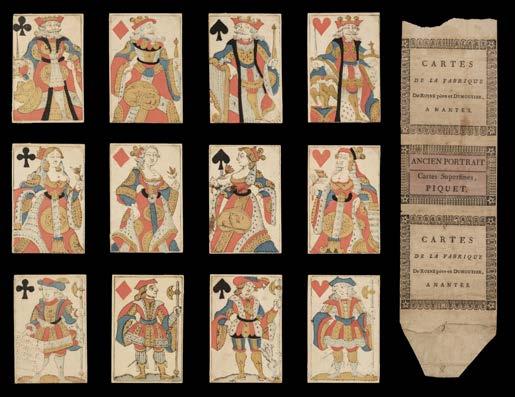 CARTES
DE LA FABRIQUE
De ROINÉ père et DUMOUTIER,
A NANTES.
ANCIEN PORTRAIT
Cartes Superfines,
PIQUET.
CARTES
DE LA FABRIQUE
De ROINÉ père et DUMOUTIER,
A NANTES